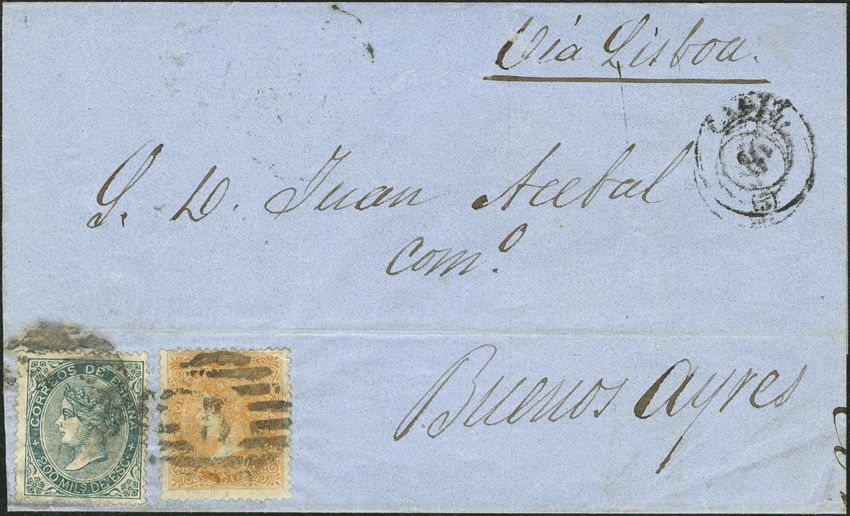 Via Lisboa.
S. D. Juan Acebal
Com.º
Buenos Ayres
CORREOS DE ESPAÑA
200 MILS DE ESC.
3